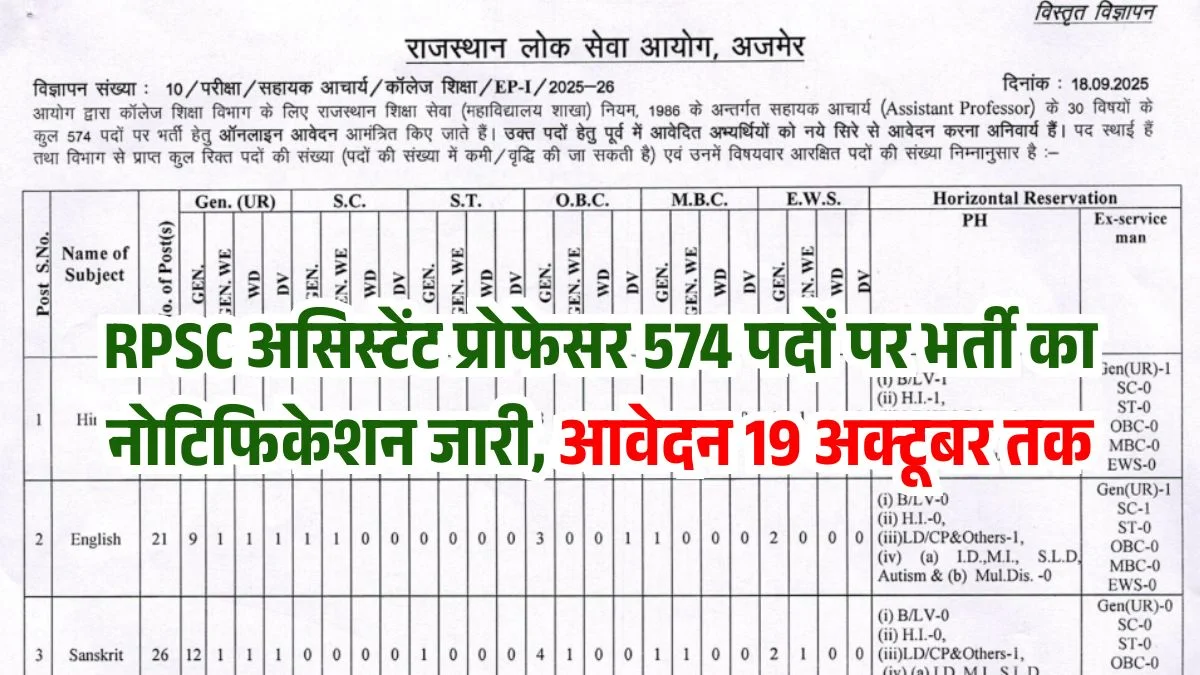 विस्तृत विज्ञापन
राजस्थान लोक सेवा आयोग, अजमेर
विज्ञापन संख्या : 10/परीक्षा/सहायक आचार्य/कॉलेज शिक्षा/EP-I/2025-26
दिनांक : 18.09.2025
आयोग द्वारा कॉलेज शिक्षा विभाग के लिए राजस्थान शिक्षा सेवा (महाविद्यालय शाखा) नियम, 1986 के अन्तर्गत सहायक आचार्य (Assistant Professor) के 30 विषयों के
कुल 574 पदों पर भर्ती हेतु ऑनलाइन आवेदन आमंत्रित किए जाते हैं। उक्त पदों हेतु पूर्व में आवेदित अभ्यर्थियों को नये सिरे से आवेदन करना अनिवार्य हैं। पद स्थाई हैं
तथा विभाग से प्राप्त कुल रिक्त पदों की संख्या (पदों की संख्या में कमी/वृद्धि की जा सकती है) एवं उनमें विषयवार आरक्षित पदों की संख्या निम्नानुसार है :–
Post S.No. Name of Subject No. of Post(s) Gen. (UR) S.C. S.T. O.B.C. M.B.C. E.W.S. Horizontal Reservation
PH Ex-service man
GEN. GEN. WE WD DV GEN. GEN. WE WD DV GEN. GEN. WE WD DV GEN. GEN. WE WD DV GEN. GEN. WE WD DV GEN. GEN. WE WD DV
RPSC असिस्टेंट प्रोफेसर 574 पदों पर भर्ती का
नोटिफिकेशन जारी, आवेदन 19 अक्टूबर तक
1
(i) B/LV-1
(ii) H.I.-1,
Gen(UR)-1
SC-0
ST-0
OBC-0
MBC-0
EWS-0
2 English 21 9 1 1 1 1 1 0 0 0 0 0 0 3 0 0 1 1 0 0 0 2 0 0 0
(i) B/LV-0
(ii) H.I.-0,
(iii)LD/CP&Others-1,
(iv) (a) I.D.,M.I., S.L.D,
Autism & (b) Mul.Dis. -0
Gen(UR)-1
SC-1
ST-0
OBC-0
MBC-0
EWS-0
3 Sanskrit 26 12 1 1 1 0 0 0 0 1 0 0 0 4 1 0 0 1 1 0 0 2 1 0 0
(i) B/LV-0
(ii) H.I.-0,
(iii)LD/CP&Others-1,
(iv) (a) I.D., M.I., S.L.D,
Gen(UR)-0
SC-0
ST-0
OBC-0